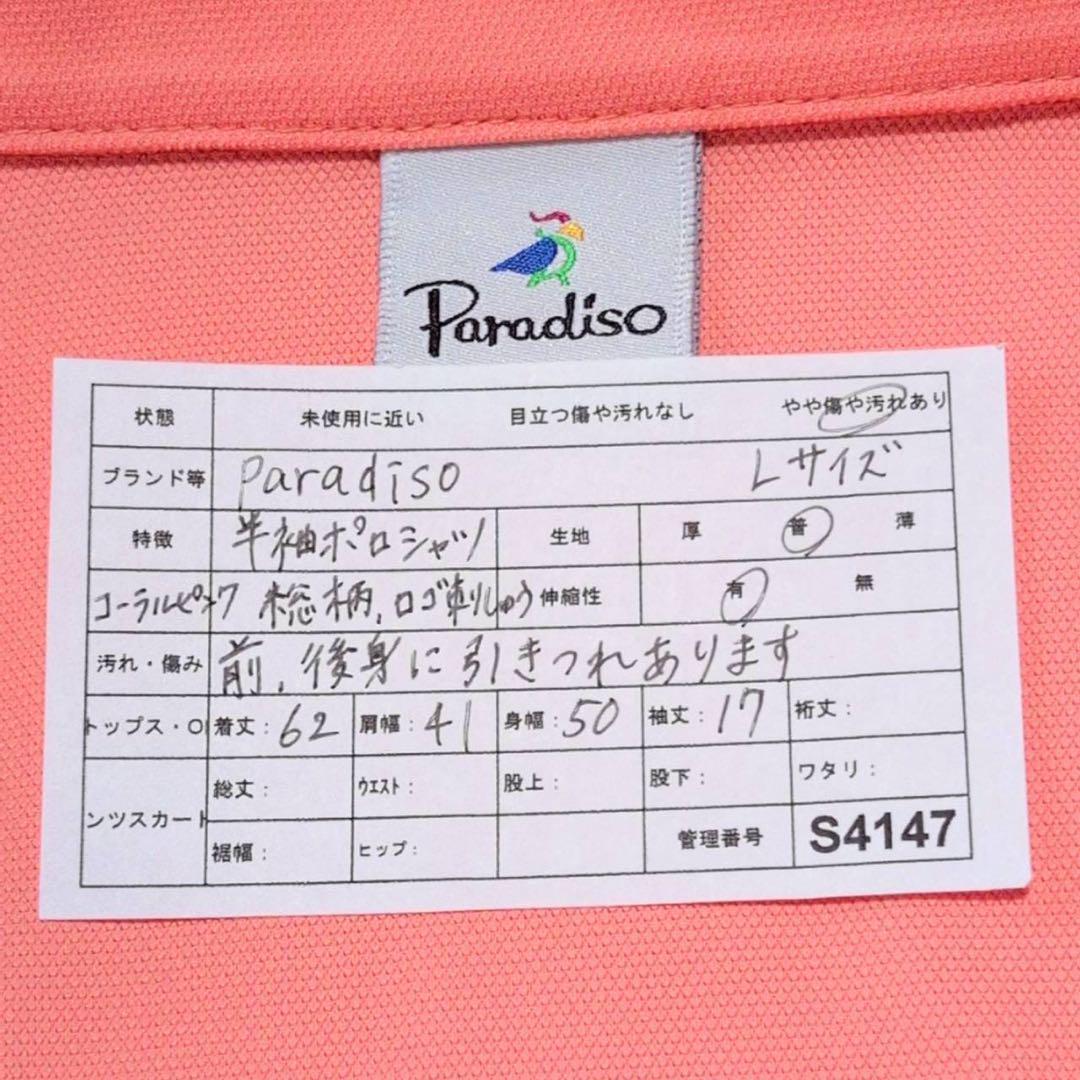 Paradiso
状態 未使用に近い 目立つ傷や汚れなし やや傷や汚れあり
ブランド等 paradiso Lサイズ
特徴 半袖ポロシャツ 生地 厚 普 薄
コーラルピンク 総柄,ロゴ刺しゅう 伸縮性 有 無
汚れ・傷み 前,後身に引きつれあります
トップス・O 着丈:62 肩幅:41 身幅:50 袖丈:17 裄丈:
ンツスカート 総丈: ウエスト: 股上: 股下: ワタリ:
裾幅: ヒップ: 管理番号 S4147